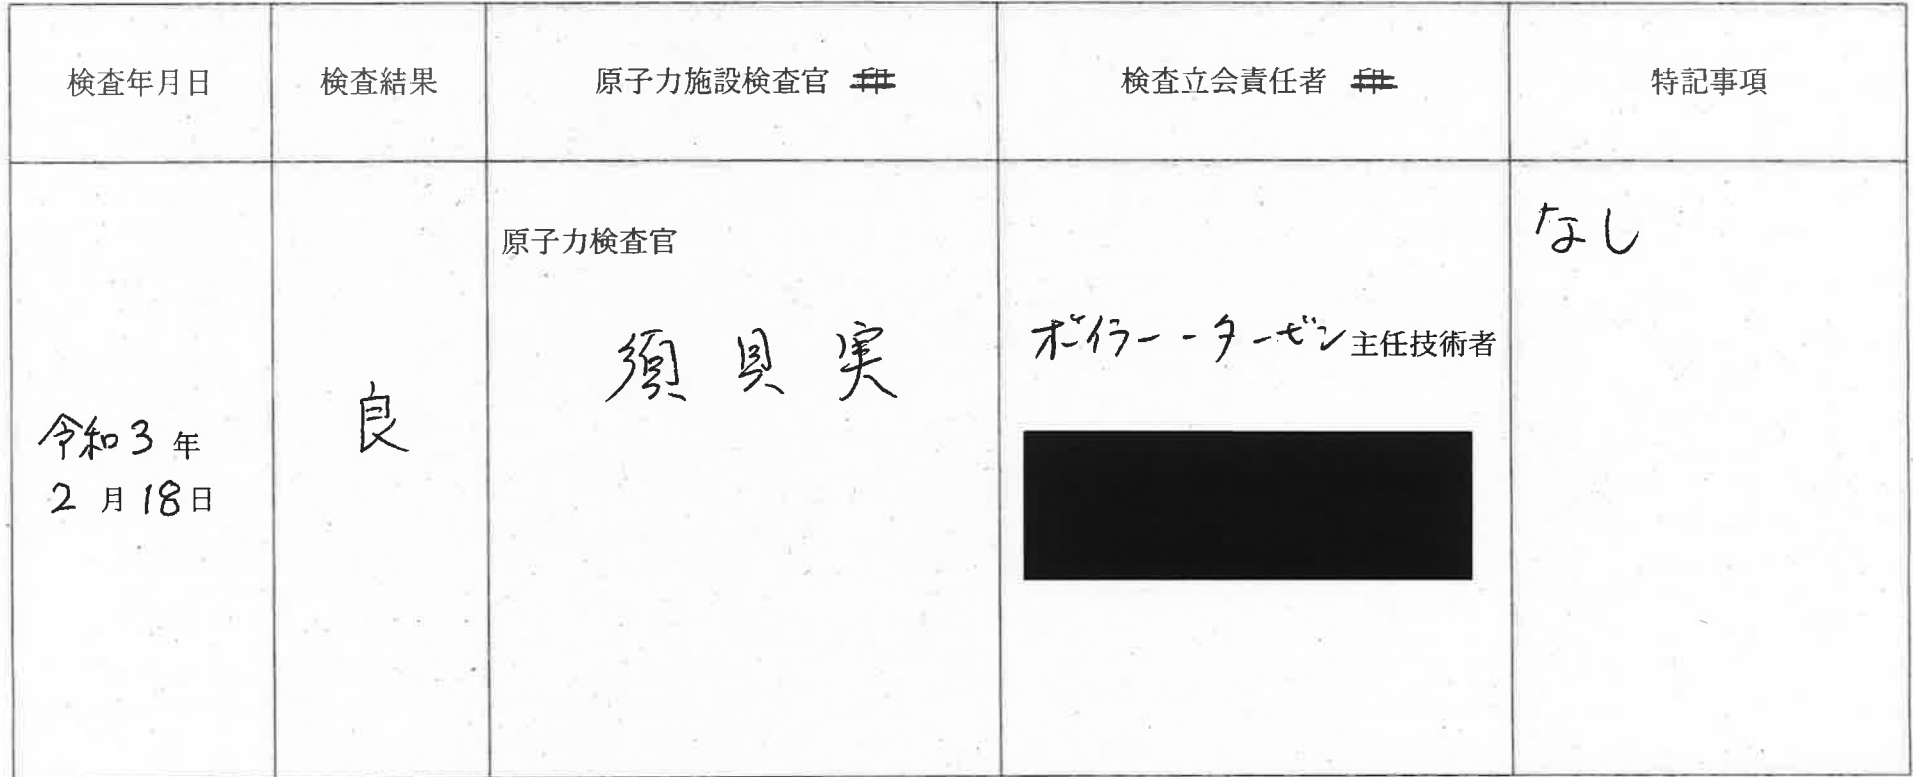 検査年月日
検査結果
原子力施設検査官 印
検査立会責任者 印
特記事項
令和3年
2月18日
良
原子力検査官
須貝 実
ボイラー・タービン主任技術者
なし